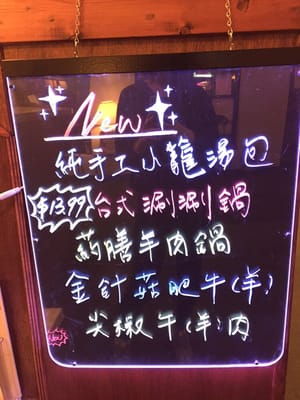 New
純手工小籠湯包
$13.99 台式涮涮鍋
葯膳羊肉鍋
金針菇肥牛(羊)
尖椒牛(羊)肉
New